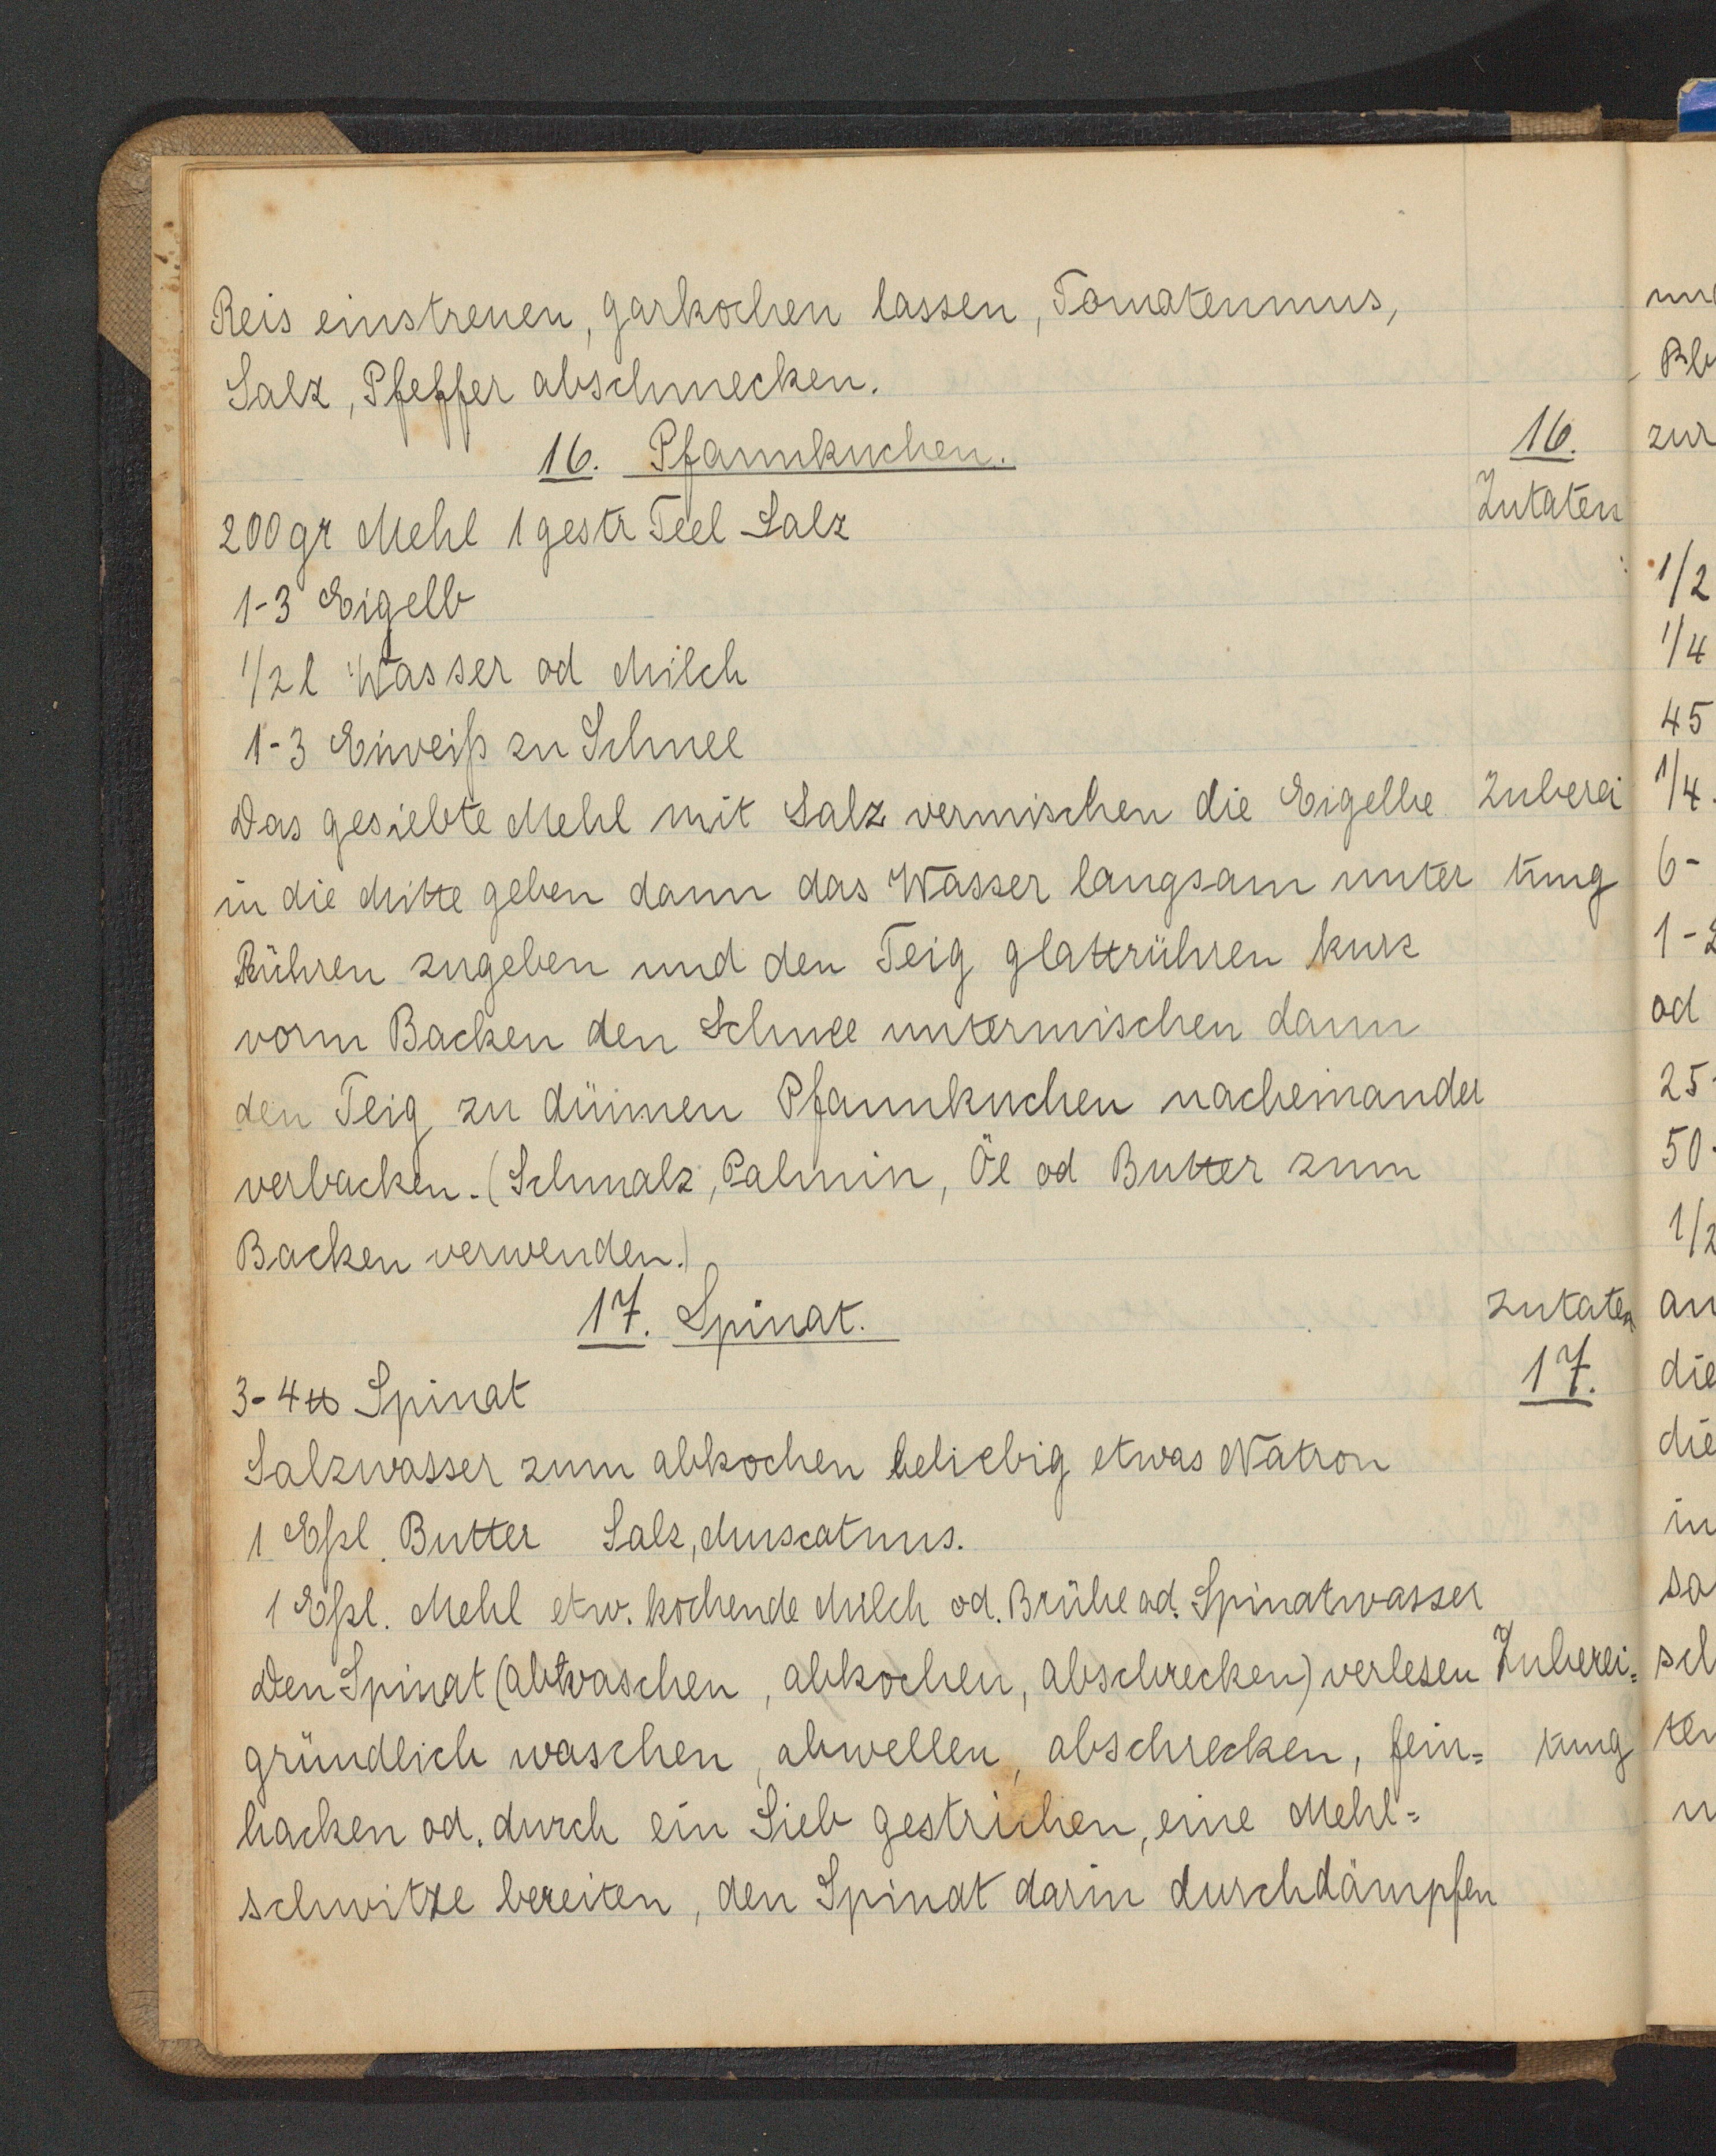 Reis einstreuen, garkochen lassen, Tomatenmus,
Salz, Pfeffer abschmecken.
16. Pfannkuchen.
16.
Zutaten
200gr Mehl 1 gestr Teel Salz
1-3 Eigelb
1/2 l Wasser od Milch
1-3 Eiweiß zu Schnee
Das gesiebte Mehl mit Salz vermischen die Eigelbe Zuberei
in die Mitte geben dann das Wasser langsam unter tung
Rühren zugeben und den Teig glattrühren kurz
vorm Backen den Schnee untermischen dann
den Teig zu dünnen Pfannkuchen nacheinander
verbacken. (Schmalz, Palmin, Öl od Butter zum
Backen verwenden.)
17. Spinat. Zutaten
17.
3-4 ℔ Spinat
Salzwasser zum abkochen beliebig etwas Natron
1 Eßl. Butter Salz, Muscatnus.
1 Eßl. Mehl etw. kochende Milch od. Brühe od. Spinatwasser
Den Spinat (abwaschen, abkochen, abschrecken) verlesen Zuberei=
gründlich waschen, abwellen, abschrecken, fein= tung
hacken od. durch ein Sieb gestrichen, eine Mehl=
schwitze bereiten, den Spinat darin durchdämpfen
zur
1/2
1/4
45
1/4
6-
od
25
50
1/2
die
die
in